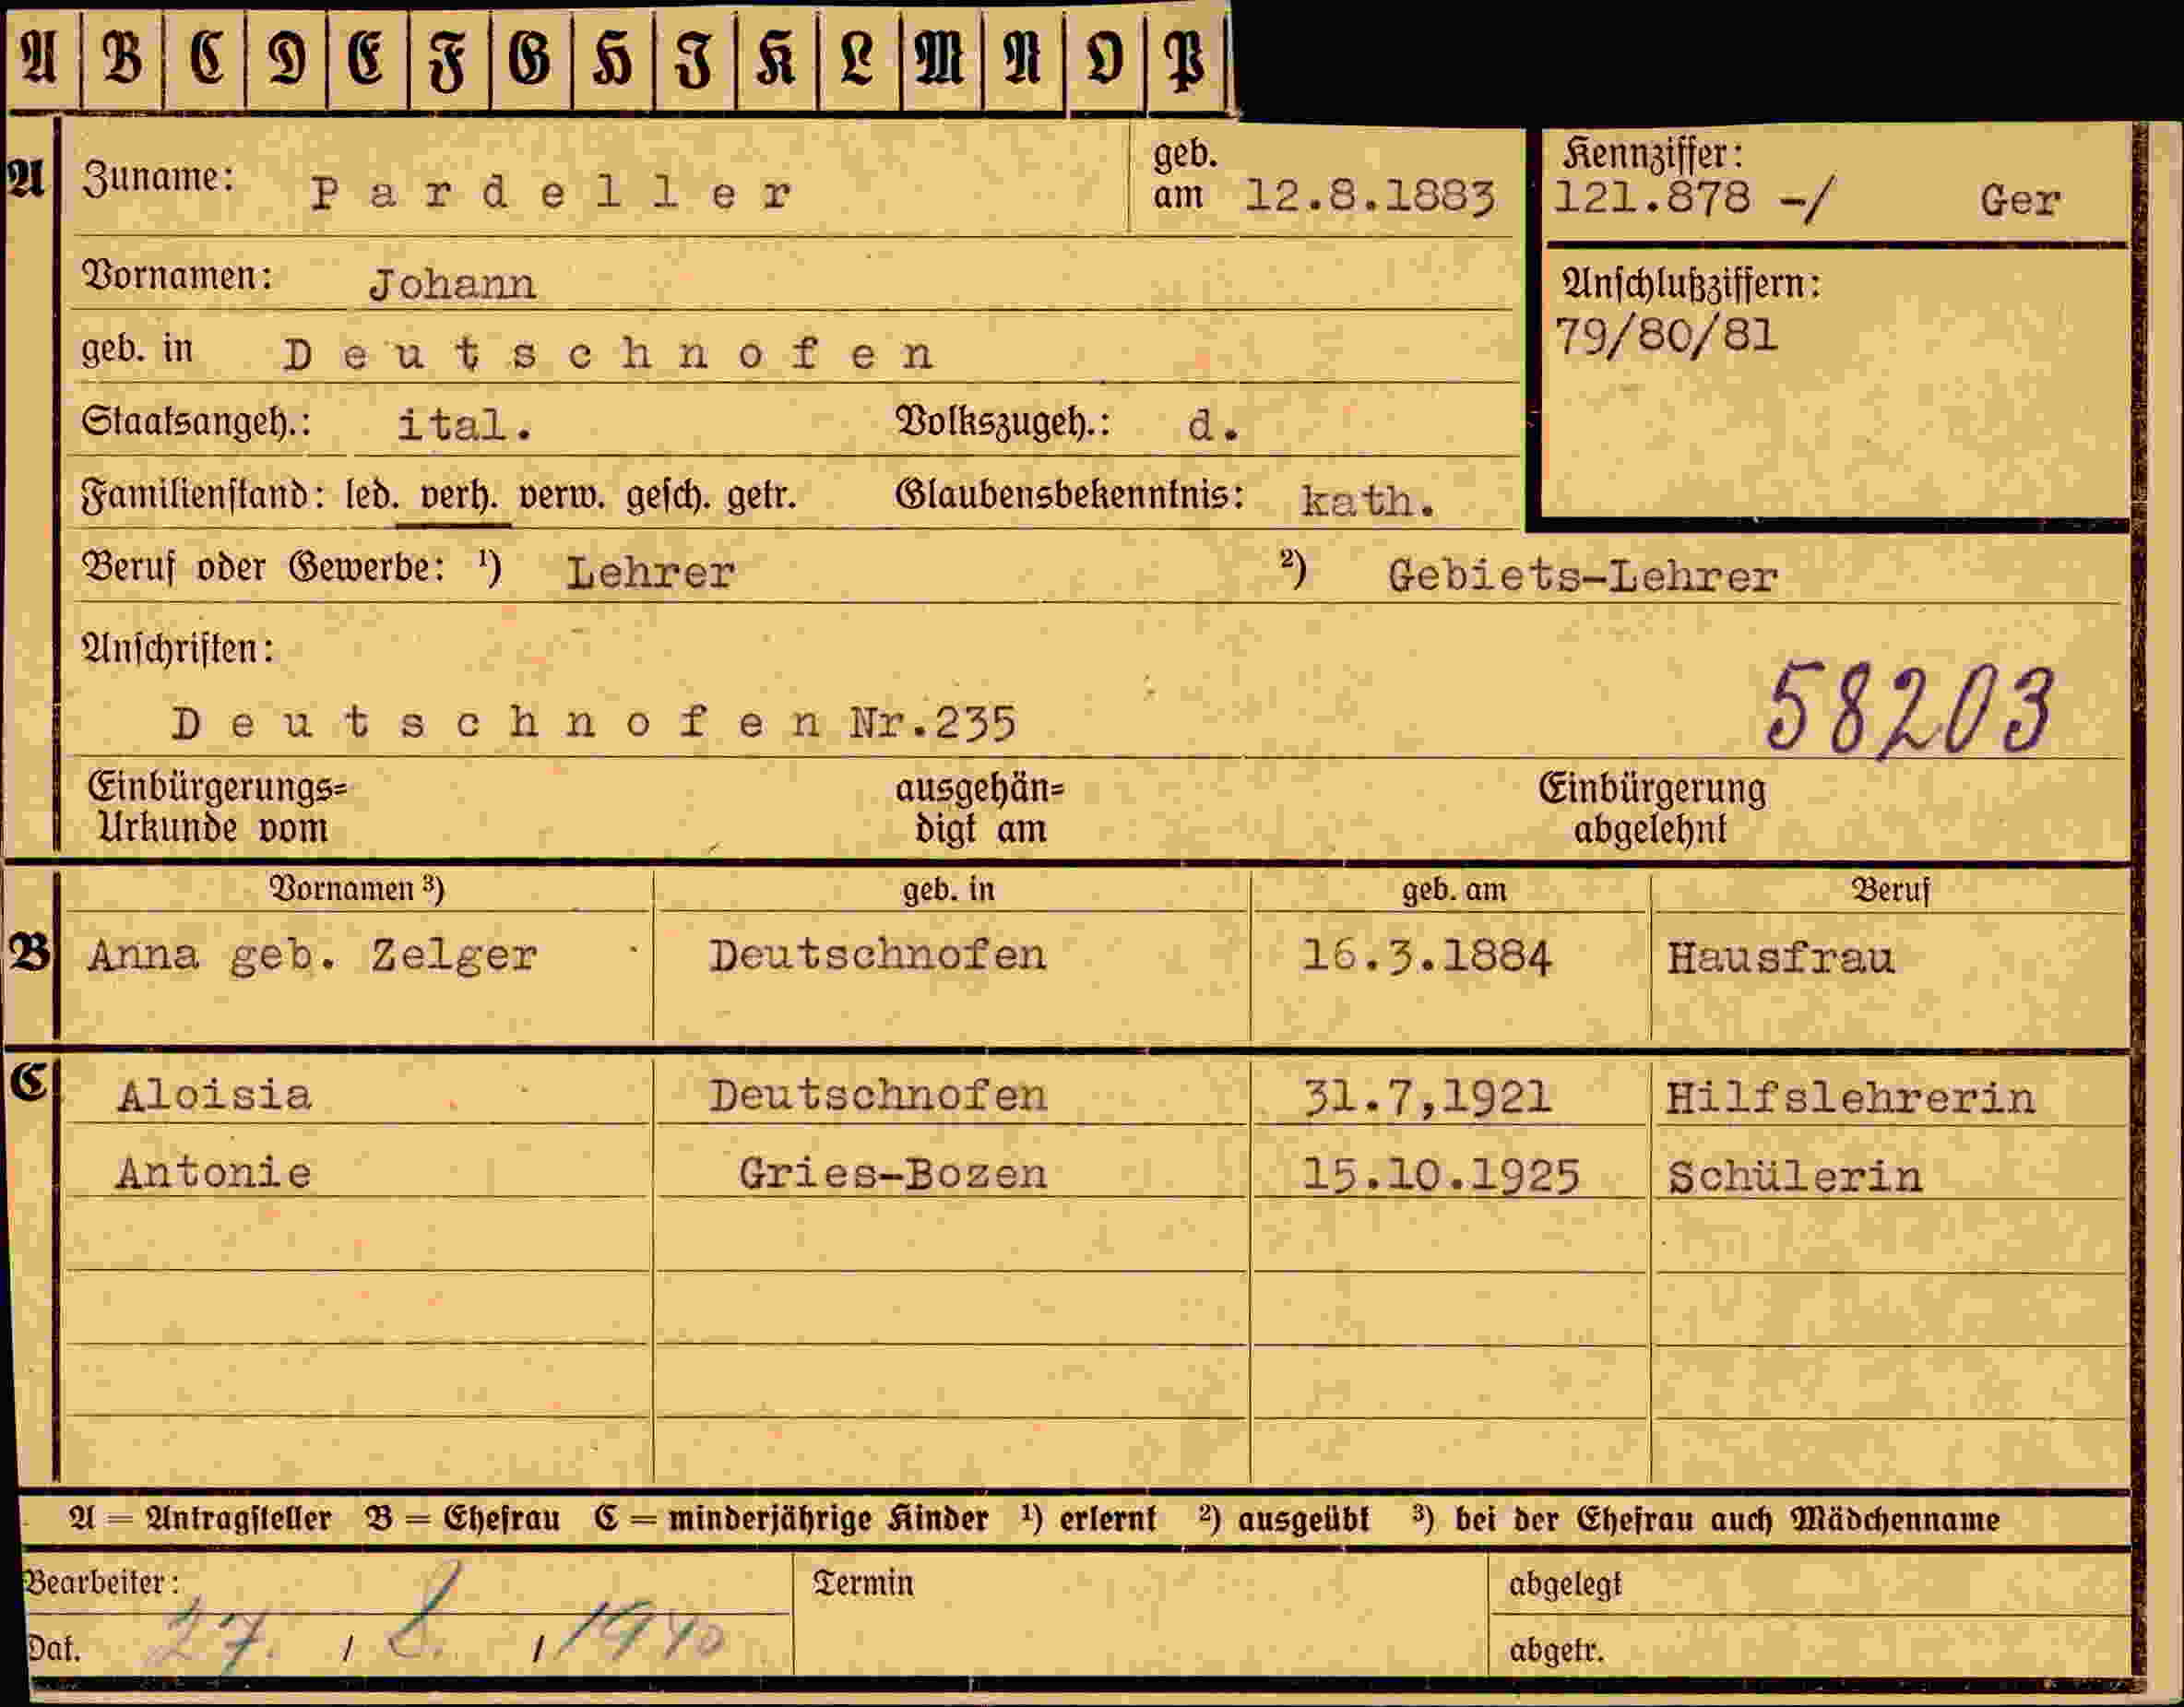 A B C D E F G H I K L M N O P
A Zuname: Pardeller geb. am 12.8.1883
Kennziffer: 121.878 -/ Ger
Vornamen: Johann
Anschlußziffern:
79/80/81
geb. in Deutschnofen
Staatsangeh.: ital. Volkszugeh.: d.
Familienstand: led. verh. verw. gesch. getr. Glaubensbekenntnis: kath.
Beruf oder Gewerbe: ¹) Lehrer ²) Gebiets-Lehrer
Anschriften:
Deutschnofen Nr.235
58203
Einbürgerungs= ausgehän= Einbürgerung
Urkunde vom digt am abgelehnt
Vornamen ³) geb. in geb. am Beruf
B Anna geb. Zelger Deutschnofen 16.3.1884 Hausfrau
C Aloisia Deutschnofen 31.7,1921 Hilfslehrerin
Antonie Gries-Bozen 15.10.1925 Schülerin
A = Antragsteller B = Ehefrau C = minderjährige Kinder ¹) erlernt ²) ausgeübt ³) bei der Ehefrau auch Mädchenname
Bearbeiter: Termin abgelegt
Dat. 27. / 8. / 1940 abgetr.